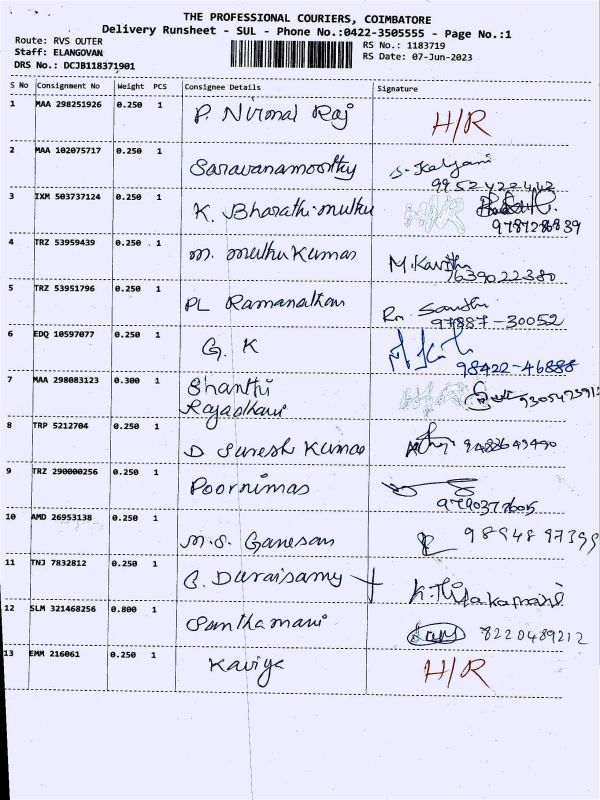 THE PROFESSIONAL COURIERS, COIMBATORE
Delivery Runsheet - SUL - Phone No.:0422-3505555 - Page No.:1
Route: RVS OUTER
RS No.: 1183719
Staff: ELANGOVAN
RS Date: 07-Jun-2023
DRS No.: DCJB118371901
S No Consignment No Weight PCS Consignee Details Signature
1 MAA 298251926 0.250 1 P. Nirmal Raj H/R
2 MAA 102075717 0.250 1 Saravanamoorthy S. Kalyani
99524 22442
3 IXM 503737124 0.250 1 K. Bharathi muthu H/R
9787286839
4 TRZ 53959439 0.250 1 m. muthu Kumar M. Kavitha
7639022380
5 TRZ 53951796 0.250 1 PL Ramanathan
97887-30052
6 EDQ 10597077 0.250 1 G. K
98422-46888
7 MAA 298083123 0.300 1 Shanthi H/R
Rajadhani
8 TRP 5212704 0.250 1 D Suresh Kumar
9 TRZ 290000256 0.250 1 Poornimas
10 AMD 26953138 0.250 1 m.s. Ganesan 98948 97399
11 TNJ 7832812 0.250 1 G. Duraisamy
12 SLM 321468256 0.800 1 Santhamani 8220489212
13 EMM 216061 0.250 1 Kaviya H/R